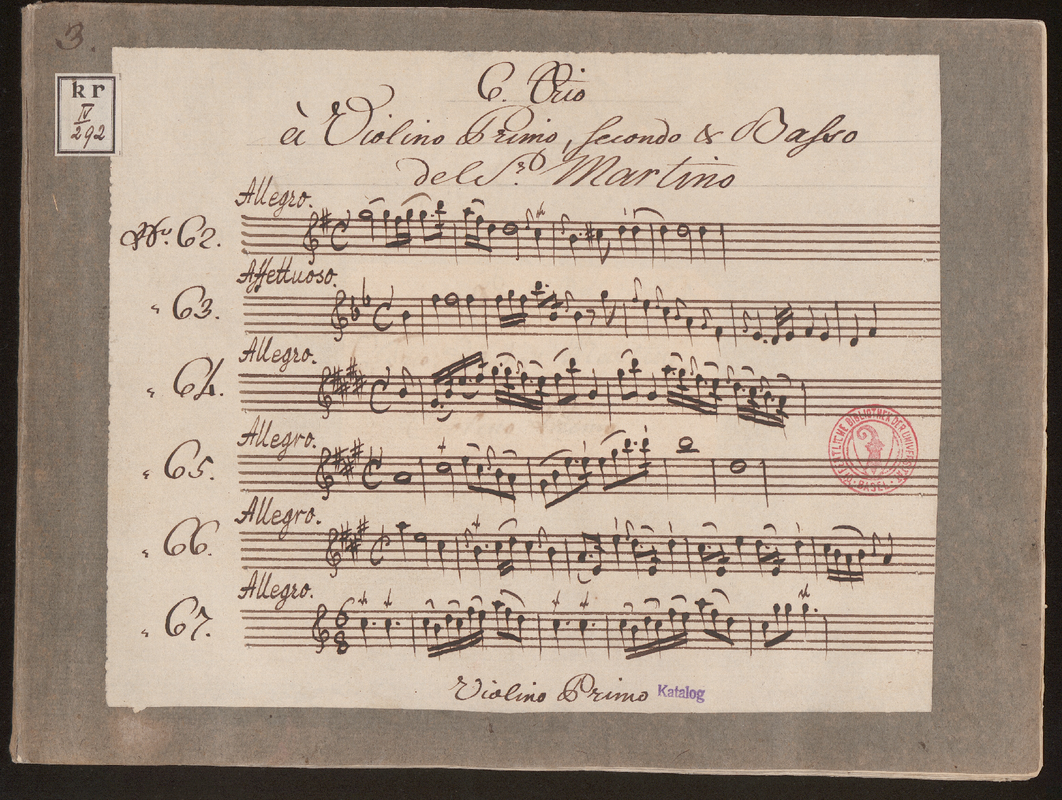 3.
kr
IV
292
6. Trio
à Violino Primo, Secondo & Basso
del Sr. Martino
Allegro.
No. 62.
Affettuoso.
" 63.
Allegro.
" 64.
Allegro.
" 65.
Allegro.
" 66.
Allegro.
" 67.
6
8
Violino Primo
Katalog
ÖFFENTLICHE BIBLIOTHEK DER UNIVERSITÄT
BASEL